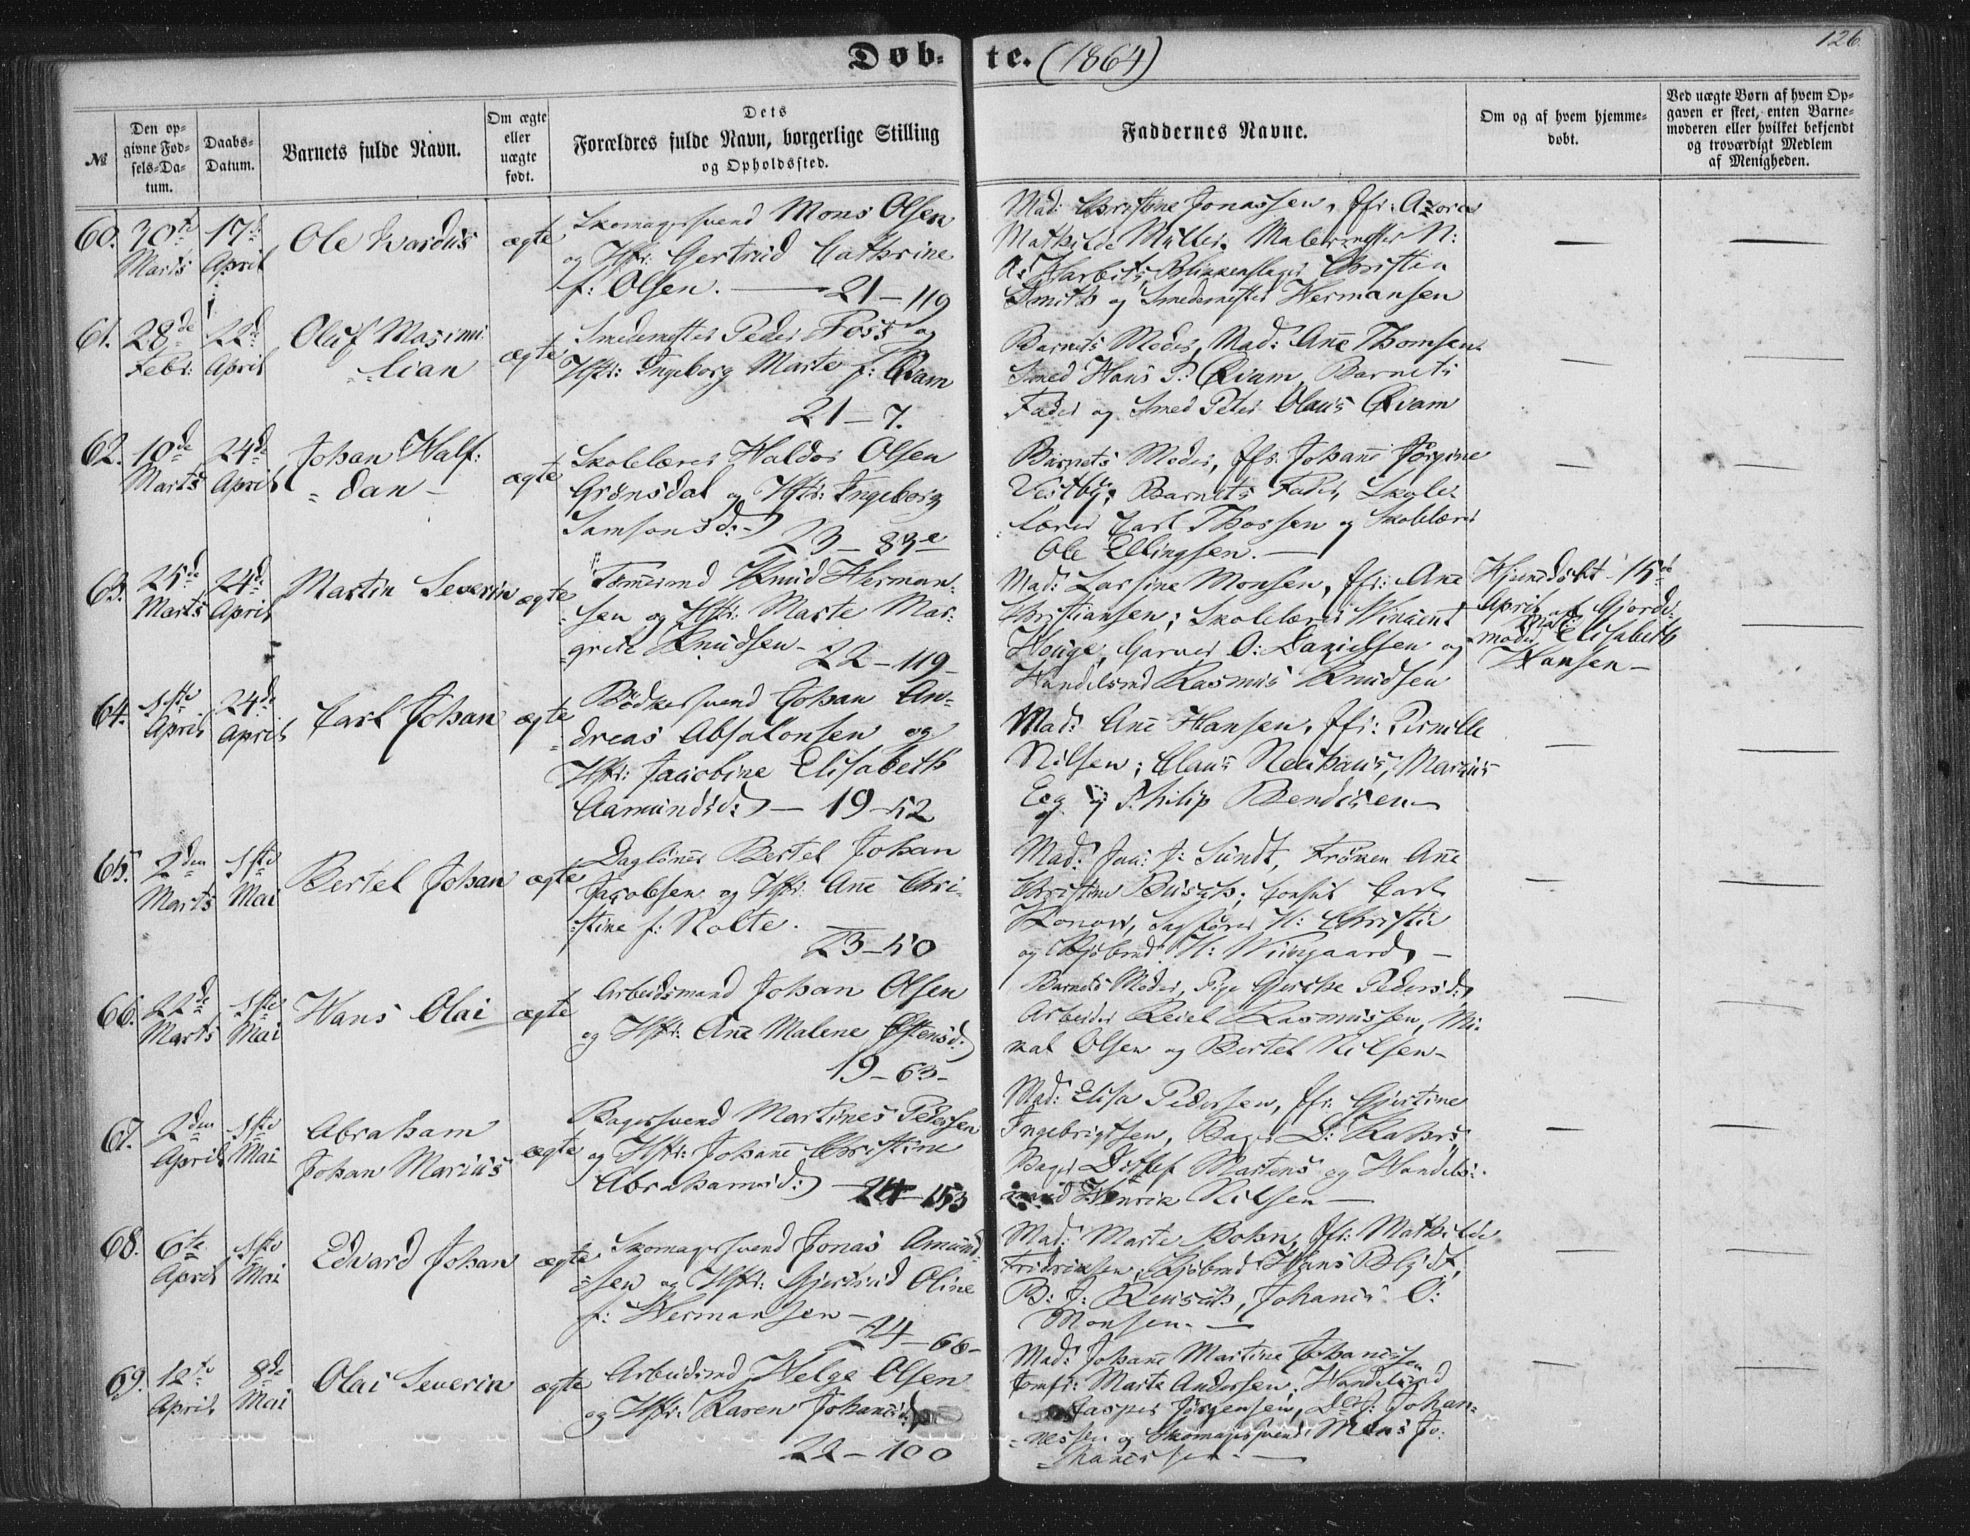 126.
Døb- te. (1864)
№
Den op-
givne Fød-
sels-Da-
tum.
Daabs-
Datum.
Barnets fulde Navn.
Om ægte
eller
uægte
født.
Dets
Forældres fulde Navn, borgerlige Stilling
og Opholdssted.
Faddernes Navne.
Om og af hvem hjemme-
døbt.
Ved uægte Børn af hvem Op-
gaven er skeet, enten Barne-
moderen eller hvilket bekjendt
og troværdigt Medlem
af Menigheden.
60. 30te Marts 17de April Ole ægte
Skomagersvend Mons Olsen
og Hstr: Gertrud Cathrine
f: Olsen. — 21 — 119
Mad: Christine Jonassen, Jfr:
Mathilde Müller, Malermester N:
Blikkenslager Christian
Smith og Smedemester Hermansen
— —
61. 28de Febr: 22de April Oluf Maximi
lian ægte
Smedemester Peder Foss og
Hstr: Ingeborg Marte f: Qvam
21 — 7.
Barnets Moder, Mad: Ane Thomsen
Smed Hans P: Qvam, Barnets
Fader og Smed Peter Olaus Qvam
— —
62. 10de Marts 24de April Johan Half:
dan — ægte
Skolelærer Haldor Olsen
Grønsdal og Hstr: Ingeborg
Samsonsd: — 23 — 83
Barnets Moder, Jfr: Johane Jørgine
Vestby; Barnets Fader, Skole
lærer Carl Thorsen og Skolelærer
Ole Ellingsen. —
— —
63. 25de Marts 24de April Martin Severin ægte
Tømmermd Knud Herman-
sen og Hstr: Marte Mar-
grete Knudsen — 22 — 119 —
Mad: Larsine Monsen, Jfr: Ane
Christiansen; Skolelærer Vincent
Houge, Garver O: Danielsen og
Handelsmd Rasmus Knudsen
Hjemdøbt 15de
April af Gjorde-
moder Mad: Elisabeth
Hansen —
—
64. 1ste April 24de April Carl Johan ægte
Bødkersvend Johan An-
dreas Absalonsen og
Hstr: Jacobine Elisabeth
Aamundsd: — 19 — 52
Mad: Ane Hansen, Jfr: Pernille
Nilsen; Claus Neuhaus, Marius
Eeg og Philip Bendixen —
— —
65. 2den Marts 1ste Mai Bertel Johan ægte
Dagløner Bertel Johan
Jacobsen og Hstr: Ane Chri-
stine f: Nolte.
23 — 50
Mad: J: Sundt, Frøken Ane
Christine Busch; Consul Carl
Konow, Sagfører H: Christie
og Kjøbmd: H: Wiingaard —
— —
66. 22de Marts 1ste Mai Hans Olai ægte
Arbeidsmand Johan Olsen
og Hstr: Ane Malene Østensd:
19 — 63 —
Barnets Moder, Pige Gjertke Pedersd:
Arbeider Reiel Rasmussen, Mi-
kal Olsen og Bertel Nilsen —
— —
67. 2den April 1ste Mai Abraham
Johan Marius ægte
Bagersvend Martines Pedersen
og Hstr: Johane Christine
Abrahamsd: — 24 — 153
Mad: Elisa Pedersen, Jfr: Gjertine
Ingebrigtsen, Bager D: Kahrs,
Bager Ditlef Martens og Handels-
mand Henrik Nilsen —
— —
68. 6te April 1ste Mai Edvard Johan ægte
Skomagersvend Jonas Amund-
sen og Hstr: Gjertrud Oline
f: Hermansen —
24 — 66 —
Mad: Marte Bohn, Jfr: Mathilde
Fredriksen; Kjøbmd Hans Blydt,
B: J: Reusch, Johanes O:
Monsen. —
— —
69. 12te April 8de Mai Olai Severin ægte
Arbeidsmd Helge Olsen
og Hstr: Karen Johanesd:
22 — 100
Mad: Johane Martine Johanessen
Jomfr: Marte Andersen; Handelsmd
Jasper Jørgensen, Ditl: Johan-
nessen og Skomagersvend Mons Jo-
hanessen. —
— —